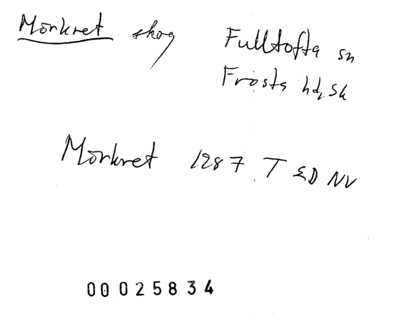 Mörkret skog Fulltofta sn
Frosta hd, Sk
Mörkret 1287 T ED NV
00025834